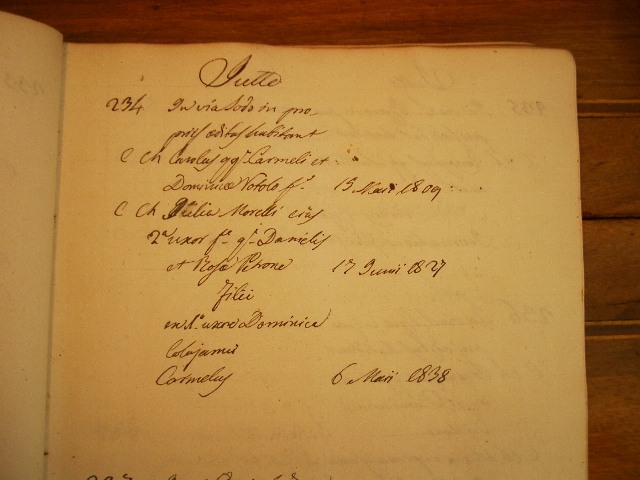 Jutte
234 In via Sodo in pro-
priis ædibus habitant
C Ch Carolus qq.m Carmeli et
Dominicæ Votolo f.s 13 Maii 1809
C Ch Julia Morelli eius
2.a uxor f.a q.m Danielis
et Rosæ Perone 17 Junii 1827
Filii
ex 1.a uxore Dominica
Colojanni
Carmelus 6 Maii 1838